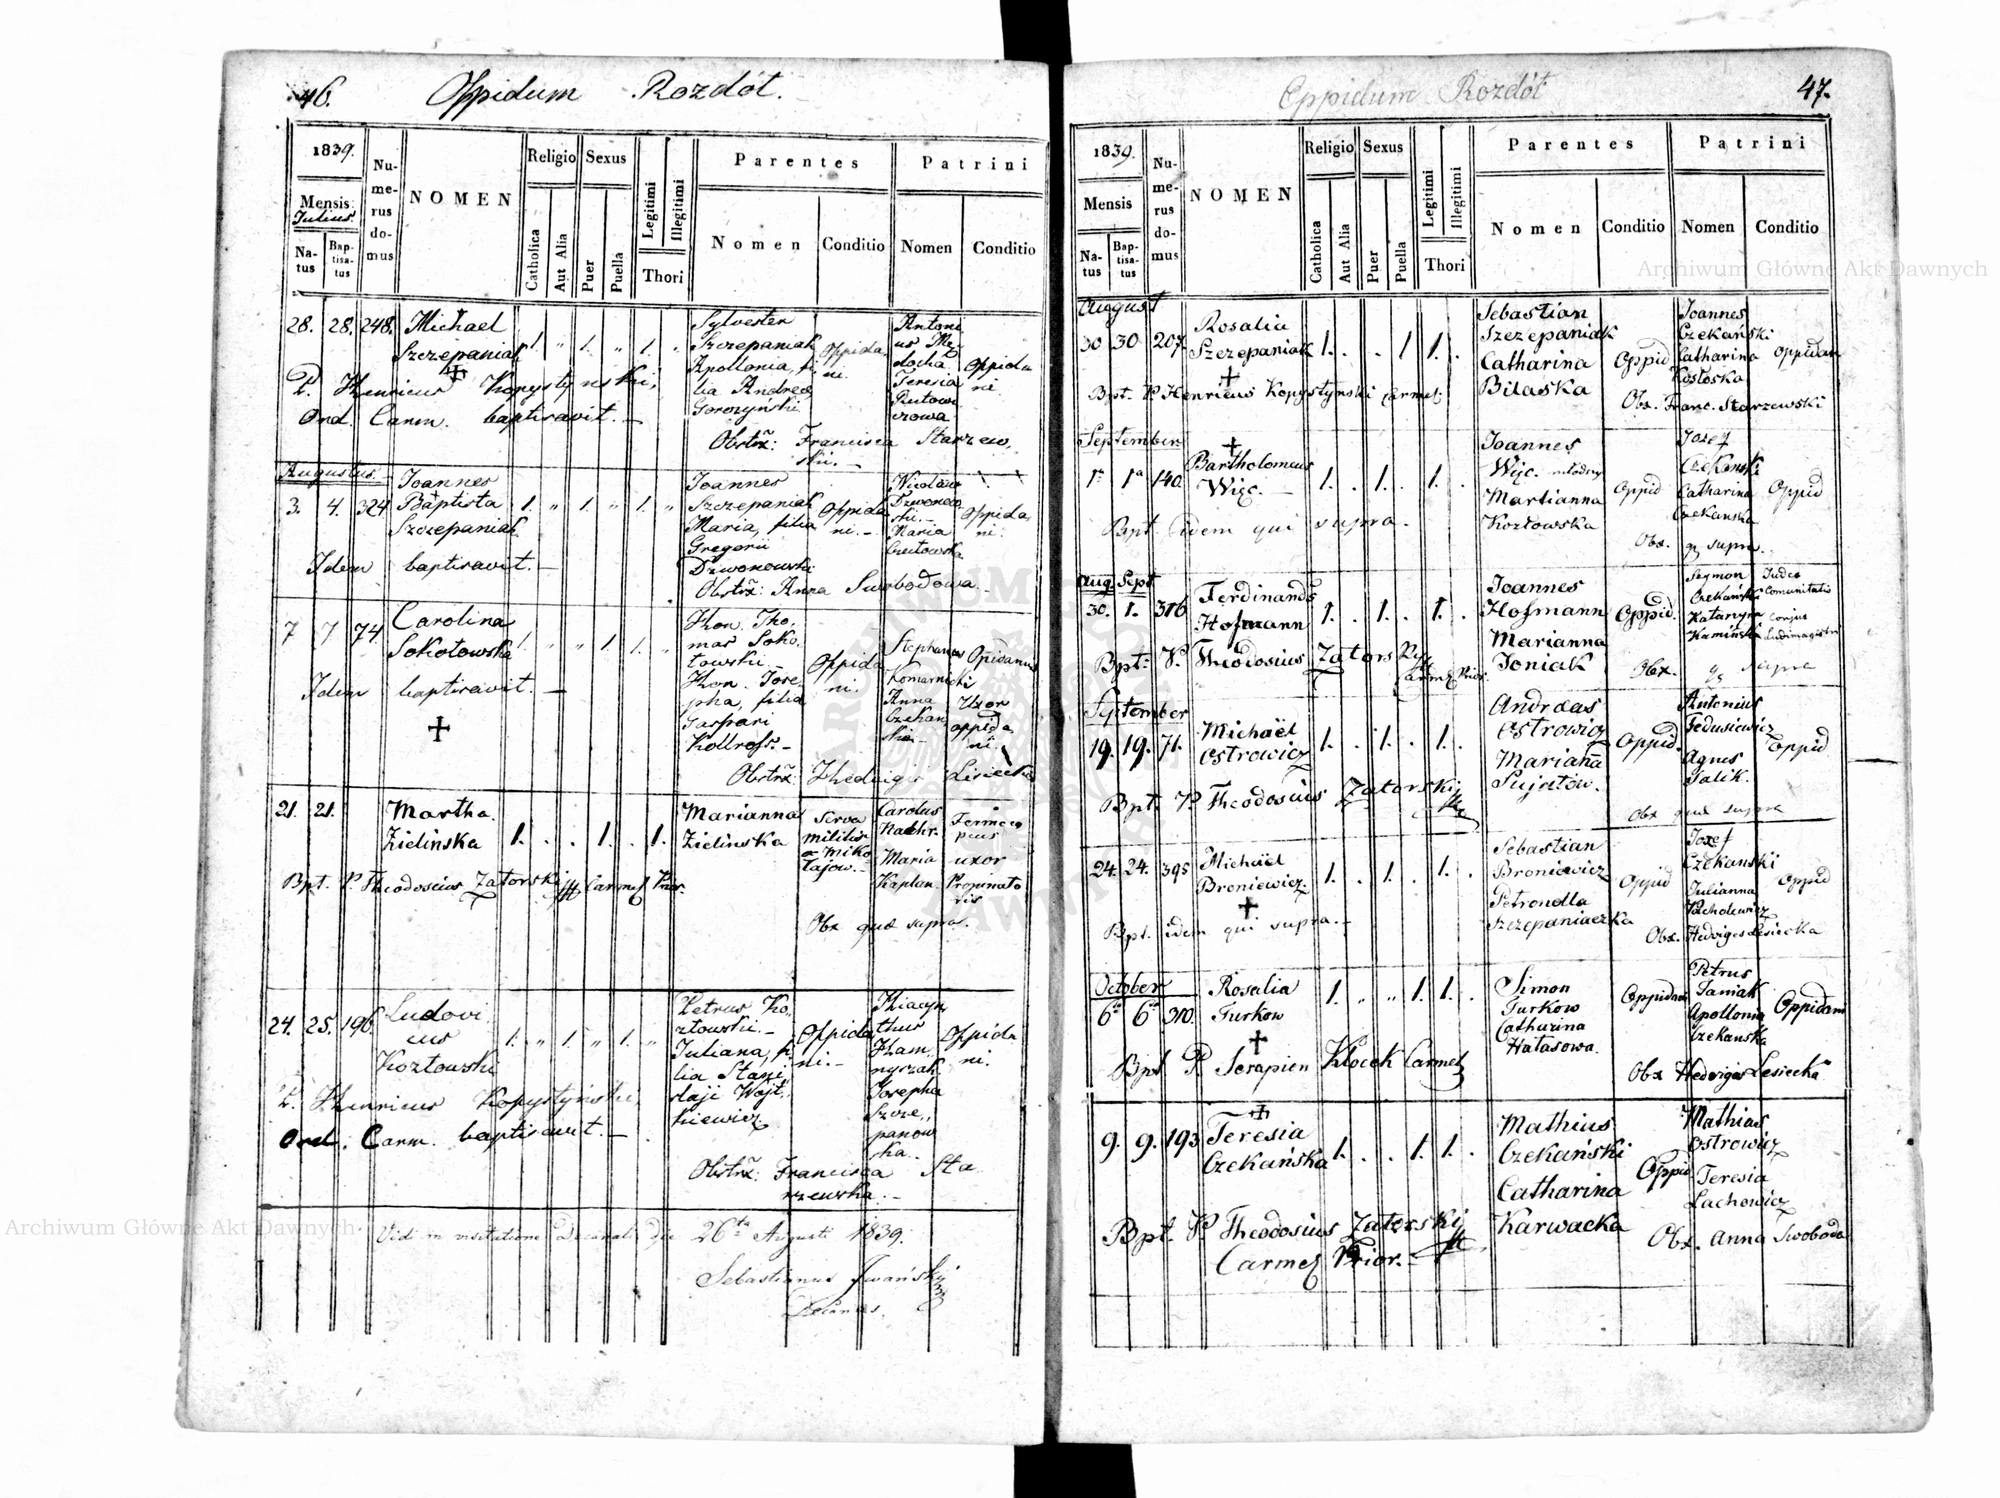 46. Oppidum Rozdół.
1839.
Mensis
Julius
Natus
Baptisatus
Numerus domus
NOMEN
Religio
Catholica
Aut Alia
Sexus
Puer
Puella
Legitimi
Illegitimi
Thori
Parentes
Nomen
Conditio
Patrini
Nomen
Conditio
28. 28. 248.
Michael
Szczepaniak
1. " 1. " 1. "
Sylvester
Szczepaniak
Apollonia, fi
lia Andreæ
Gorczyński
Oppida
ni.
Antoni
us
Teresia
Oppida
ni
P. Henricus Kopystynski,
Ord. Carm. baptisavit.—
Obstrx: Francisca Starzew
ski.—
Augustus.
3. 4. 324
Joannes
Baptista
Szczepaniak
1. " 1. " 1. "
Joannes
Szczepaniak
Maria, filia
Gregorii
Dzwonowski
Oppida
ni.—
Nicolaus
Dzwonow
ski.—
Maria
Oppida
ni.
Idem baptisavit.—
Obstrx: Anna Swobodowa
7 7 74
Carolina
Sokołowska
1. " " 1. 1. "
Hon. Tho,
mas Soko,
łowski.—
Hon. Jose,
pha, filia
Gaspari
Kollross.—
Oppida
ni.
Stephanus
Komarnicki
Anna
Czekan
ska.—
Opidanus
Uxor
oppida
ni.
Idem baptisavit.—
Obstrx: Hedvigis Lisiecka
21. 21.
Martha
Zielinska
1. . . 1. . 1.
Marianna
Zielinska
Serva
militis
a Miko
łajow.—
Carolus
Maria
Kaplan
uxor
Propinato
ris
Bpt. P. Theodosius Zatorski Carmel Prior.
Obx quæ supra.
24. 25. 196
Ludovi
cus
Kozłowski
1. " 1. " 1. "
Petrus Ko,
złowski.—
Juliana, fi
lia Stani
slaji Wojt,
kiewicz.
Oppida
ni.—
Hiacyn
thus
Josepha
Szcze,,
panow
ska.
Oppida
ni.
P. Henricus Kopystynski,
Ord. Carm. baptisavit.—
Obstrx: Francisca Sta
rzewska.—
Vidi in visitatione Decanali die 26ta Augusti 1839.
Sebastianus Iwański
Decanus.
Oppidum Rozdół 47.
1839.
Mensis
Natus
Baptisatus
Numerus domus
NOMEN
Religio
Catholica
Aut Alia
Sexus
Puer
Puella
Legitimi
Illegitimi
Thori
Parentes
Nomen
Conditio
Patrini
Nomen
Conditio
August
30 30 207.
Rosalia
Szczepaniak
1. . . 1 1. .
Sebastian
Szczepaniak
Catharina
Bilaska
Oppid
Joannes
Czekański
Catharina
Kosłoska
Oppidan
Bpt. P. Henricus Kopystynski Carmel:
Obx. Franc. Starzewski
September
1a 1a 140
Bartholomeus
Więc.—
1. . 1. . 1. .
Joannes
Więc. młodszy
Martianna
Kozłowska
Oppid
Jozef
Czekanski
Catharina
Czekanska
Oppid
Bpt. idem qui supra.
Obx. q supra.
Aug Sept
30. 1. 316
Ferdinands
Hofmann
1. . 1. . 1. .
Joannes
Hofmann
Marianna
Joniak
Oppid.
Szymon
Czekański
Katarzyna
Kamińska
Judex
Comunitatis
Conjux
Ludimagistri
Bpt: P. Theodosius Zatorski
Carmel Prior
Obx. q supra
September
19. 19. 71.
Michaël
Ostrowicz
1. . 1. . 1. .
Andreas
Ostrowicz
Mariana
Sujatow.
Oppid.
Antonius
Fedusiewicz
Agnes
Salik.
Oppid
Bpt. P. Theodosius Zatorski
Obx quæ supra
24. 24. 395
Michaël
Broniewicz.
1. . 1. . 1. .
Sebastian
Broniewicz
Petronella
Szczepaniaczka
Oppid
Jozef
Czekanski
Julianna
Pacholewicz
Oppid
Bpt. idem qui supra.—
Obx. Hedviges Lesiecka
October
6a 6a 310.
Rosalia
Turkow
1. " " 1. 1. .
Simon
Turkow
Catharina
Hałasowa.
Oppidani
Petrus
Paniak
Apollonia
Czekanska
Oppidani
Bpt P Serapien Klocek Carmel
Obx Hedviges Lesiecka
9. 9. 193
Teresia
Czekańska
1. . . 1. 1. .
Mathius
Czekański
Catharina
Karwacka
Oppid
Mathias
Ostrowicz
Teresia
Lachowicz
Bpt. P Theodosius Zatorski
Carmel Prior.—
Obx. Anna Swoboda
Archiwum Główne Akt Dawnych
Archiwum Główne Akt Dawnych